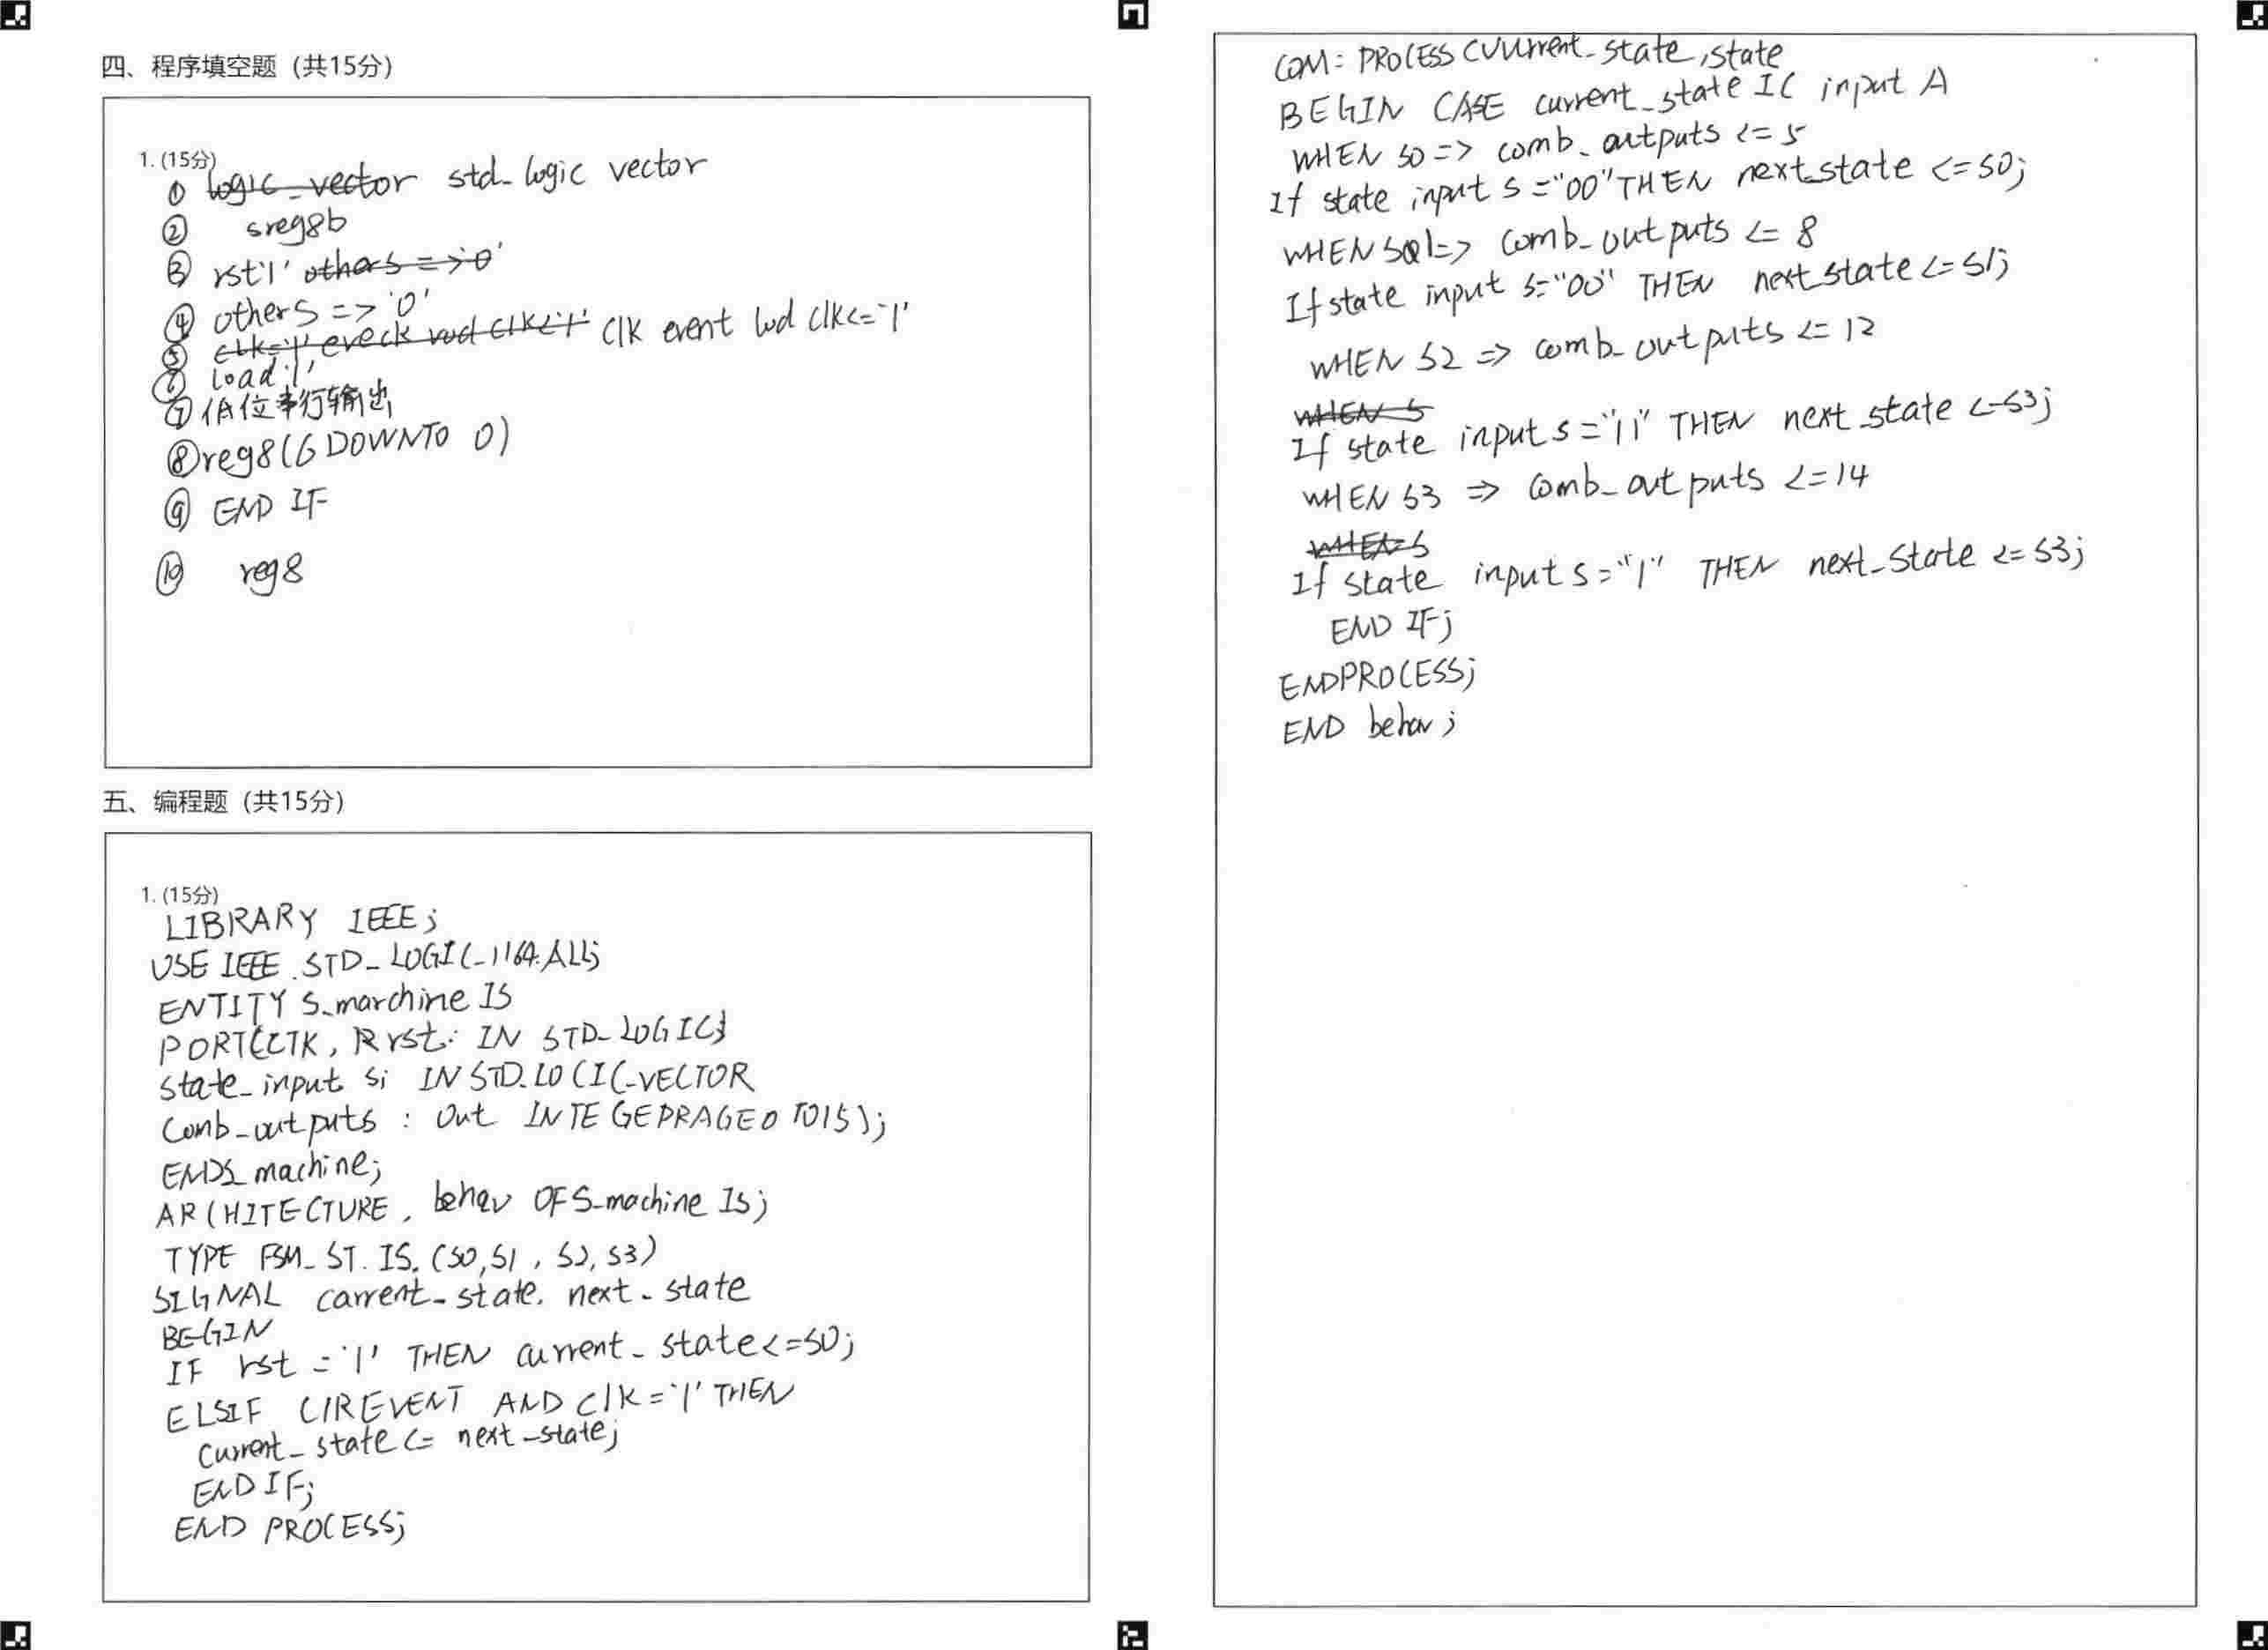 四、程序填空题（共15分）
1. (15分)
① std_logic vector
② sreg8b
③ rst'1'
④ others => '0'
⑤ clk event and clk<='1'
⑥ load '1'
⑦ 低位串行输出
⑧ reg8(6 DOWNTO 0)
⑨ END IF
⑩ reg8
五、编程题（共15分）
1. (15分)
LIBRARY IEEE;
USE IEEE.STD_LOGIC_1164.ALL;
ENTITY S_marchine IS
PORT(CTK, Rrst: IN STD_LOGIC;
state_input si IN STD_LOCIC_VECTOR
Comb_outputs : Out INTEGEPRAGE0 TO15);
ENDS_machine;
ARCHITECTURE, behav OF S_machine Is;
TYPE FSM_ST. IS. (S0,S1, S2, S3)
SIGNAL carrent_state. next_state
BEGIN
IF rst = '1' THEN current_state<=S0;
ELSIF CIREVENT AND clk='1' THEN
current_state <= next_state;
END IF;
END PROCESS;
COM: PROCESS CVurrent_state,state
BEGIN CASE current_state IC input A
WHEN S0 => comb_outputs <= 5
If state input s = "00" THEN next_state <= S0;
WHEN S1=> comb_outputs <= 8
If state input s="00" THEN next state <= S1;
WHEN S2 => comb_outputs <= 12
If state input s ="11" THEN next_state <=S3;
WHEN S3 => comb_outputs <= 14
If state input s = "1" THEN next_state <= S3;
END IF;
ENDPROCESS;
END behav;